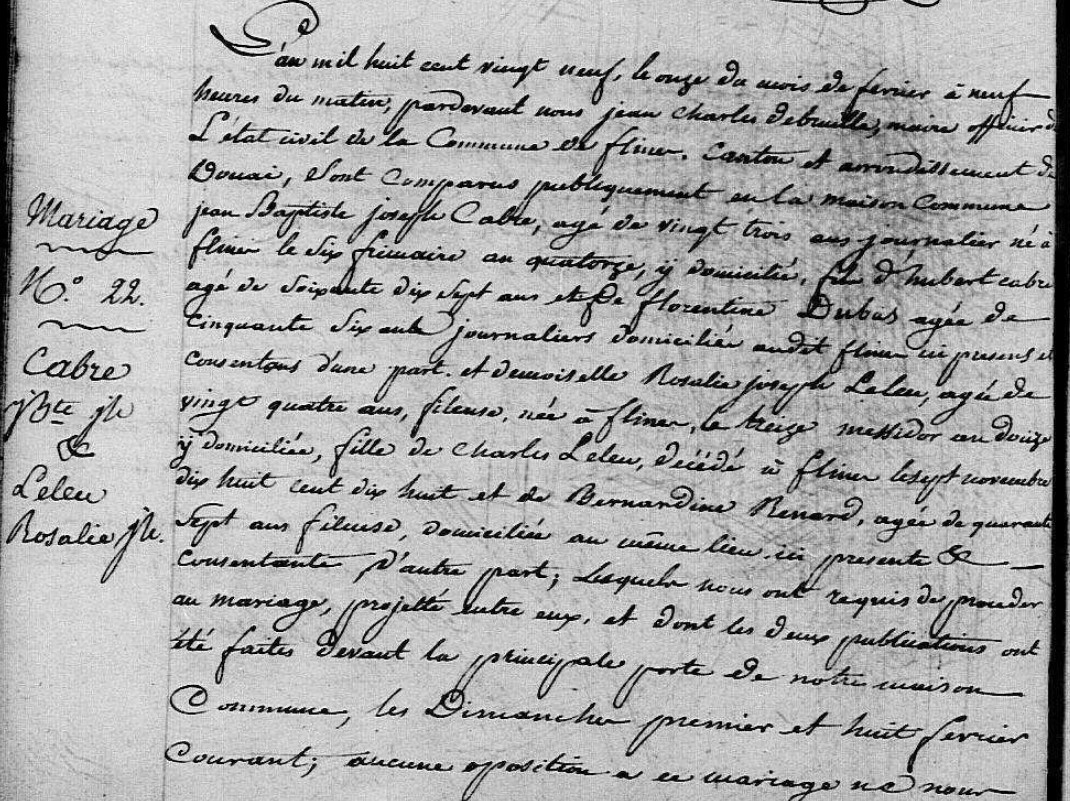 L'an mil huit cent vingt neuf, le onze du mois de fevrier à neuf
heures du matin, pardevant nous jean Charles debruille, maire officier de
L'état civil de la Commune de flines, canton et arrondissement de
Douai, Sont Comparus publiquement en la maison Commune
jean Baptiste joseph Cabre, agé de vingt trois ans journalier né à
flines le six frimaire an quatorze, y domicilié, fils d'hubert cabre
agé de soixante dix sept ans et de florentine Dubus agée de
cinquante six ans journaliers domiciliés audit flines ici presens et
consentans d'une part. et demoiselle Rosalie joseph Leleu, agée de
vingt quatre ans, fileuse, née à flines, le treize messidor an douze
y domiciliée, fille de Charles Leleu, décédé à flines le sept novembre
dix huit cent dix huit et de Bernardine Renard, agée de quarante
sept ans fileuse, domiciliée au même lieu ici presente &
consentante d'autre part; Lesquels nous ont requis de proceder
au mariage, projetté entre eux, et dont les deux publications ont
été faites devant la principale porte de notre maison
Commune, les Dimanches premier et huit fevrier
Courant; aucune oposition a ce mariage ne nous
Mariage
N.° 22.
Cabre
jBte jh
&
Leleu
Rosalie jh.